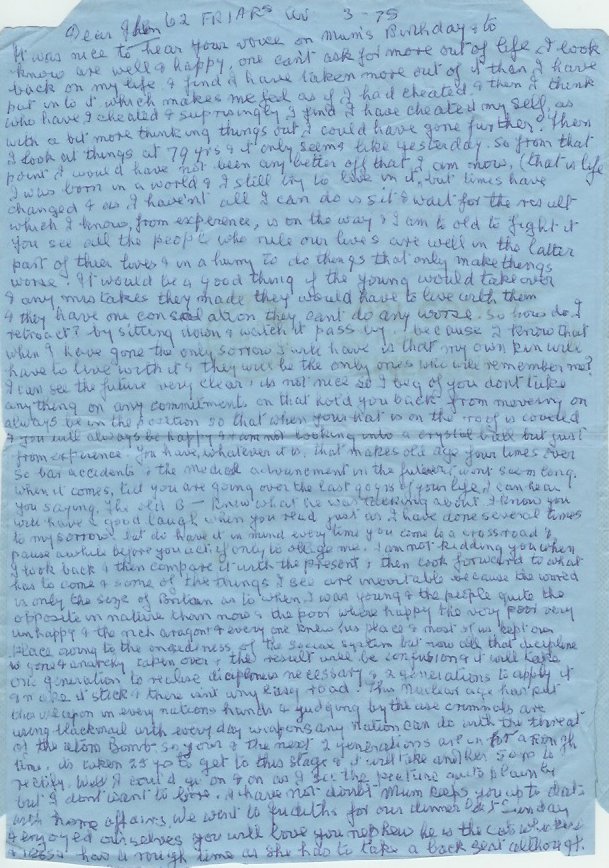 Dear 62 FRIARS 3-75
It was nice to hear your voice on Mum's Birthday & to
know are well & happy, one cant ask for more out of life, I look
back on my life & find I have taken more out of it than I have
put in to it, which makes me feel as if I had cheated & then I think
who have I cheated & suprisingly I find I have cheated my self, as
with a bit more thinking things out I could have gone further. Then
I look at things at 79 yrs & it only seems like yesterday. so from that
point I would have not been any better off that I am now, (that is life
I was born in a world & I still try to live in it, but times have
changed & as I haven't all I can do is sit & wait for the result
which I know, from experence, is on the way & I am to old to fight it
you see all the people who rule our lives are well in the latter
part of their lives & in a hurry to do things that only make things
worse. It would be a good thing if the young would take over
& any mistakes they made they would have to live with them
& they have one consolation they cant do any worse. So how do I
retroact? by sitting down & watch it pass by. because I know that
when I have gone the only sorrow I will have is that my own kin will
have to live with it & they will be the only ones who will remember me?
I can see the future very clear, its not nice so I beg of you dont take
anything on any commitments on that hold you back from moveing on
always be in the position so that when your hat is on the roof is covered
& you will always be happy I am not looking into a crystal ball but just
from experience. You have, whatever it is, that makes old age your times over
so bar accidents & the medical advancement in the future, wont seem long.
when it comes, till you are going over the last gasps of your life, I can hear
you saying, The old B— knew what he was talking about I know you
will have a good laugh when you read just as I have done several times
to my sorrow. but do have it in mind every time you come to a crossroad &
pause awhile before you act, if only to oblige me. I am not kidding you when
I look back & then compare it with the present, then look forward to what
has to come & some of the things I see are inevitable because the world
is only the size of Britain as to when I was young & the people quite the
opposite in nature than now & the poor where happy the very poor very
unhappy & the rich aragont & every one knew his place & most of us kept our
place owing to the onesidness of the social system but now all that dicipline
is gone & anarchy taken over & the result will be confusion & it will take
one generation to realise dicipleness necessary & 2 generations to apply it
& make it stick & there isnt any easy road. This Nuclear age has put
this weapon in every nations hands & judging by the use criminals are
using blackmail with every day weapons any nation can do with the threat
of the atom Bomb. so your & the next 2 generations are in for a rough
time. its taken 25 yrs to get to this stage & it will take another 50 yrs to
rectify. Well I could go on & on as I see the picture quite plainly
but I dont want to bore. I have not doubt Mum keeps you up to date
with home affairs we went to Judiths for our dinner last Sunday
& enjoyed ourselves you will love you nephew he is the cats whiskers
has a rough time as she has to take a back seat although.